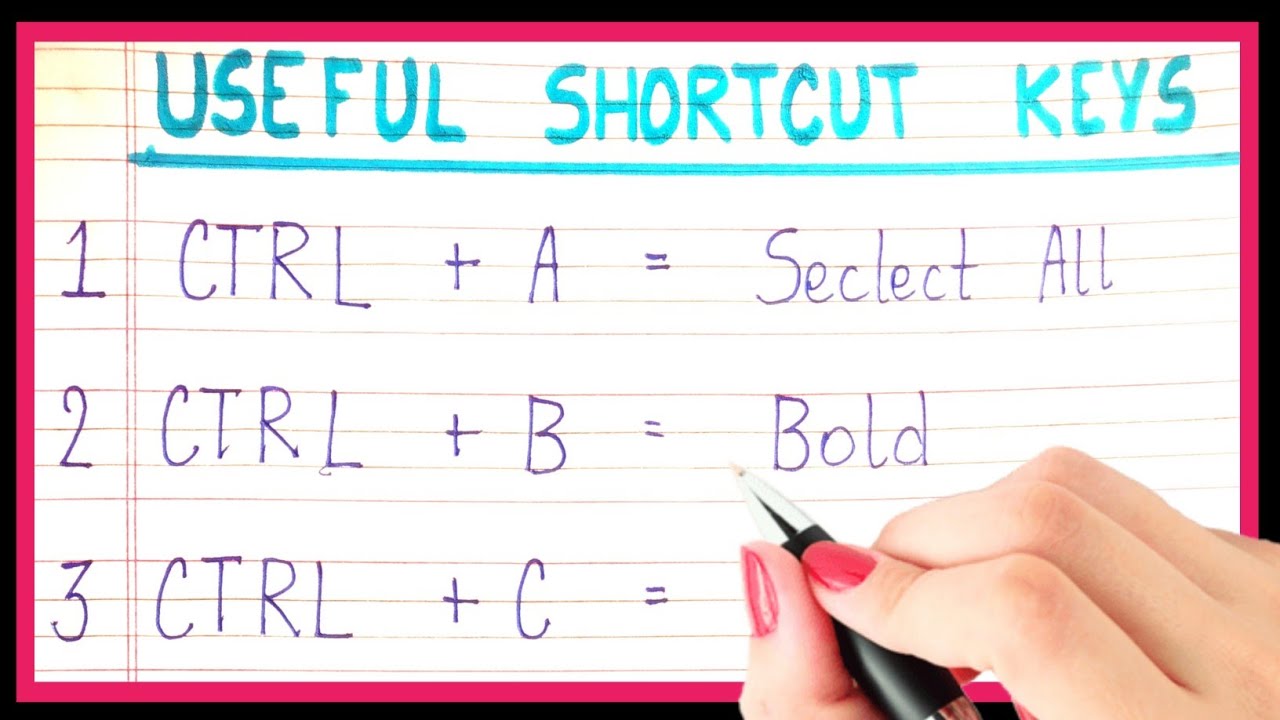 USEFUL SHORTCUT KEYS
1 CTRL + A = Seclect All
2 CTRL + B = Bold
3 CTRL + C =